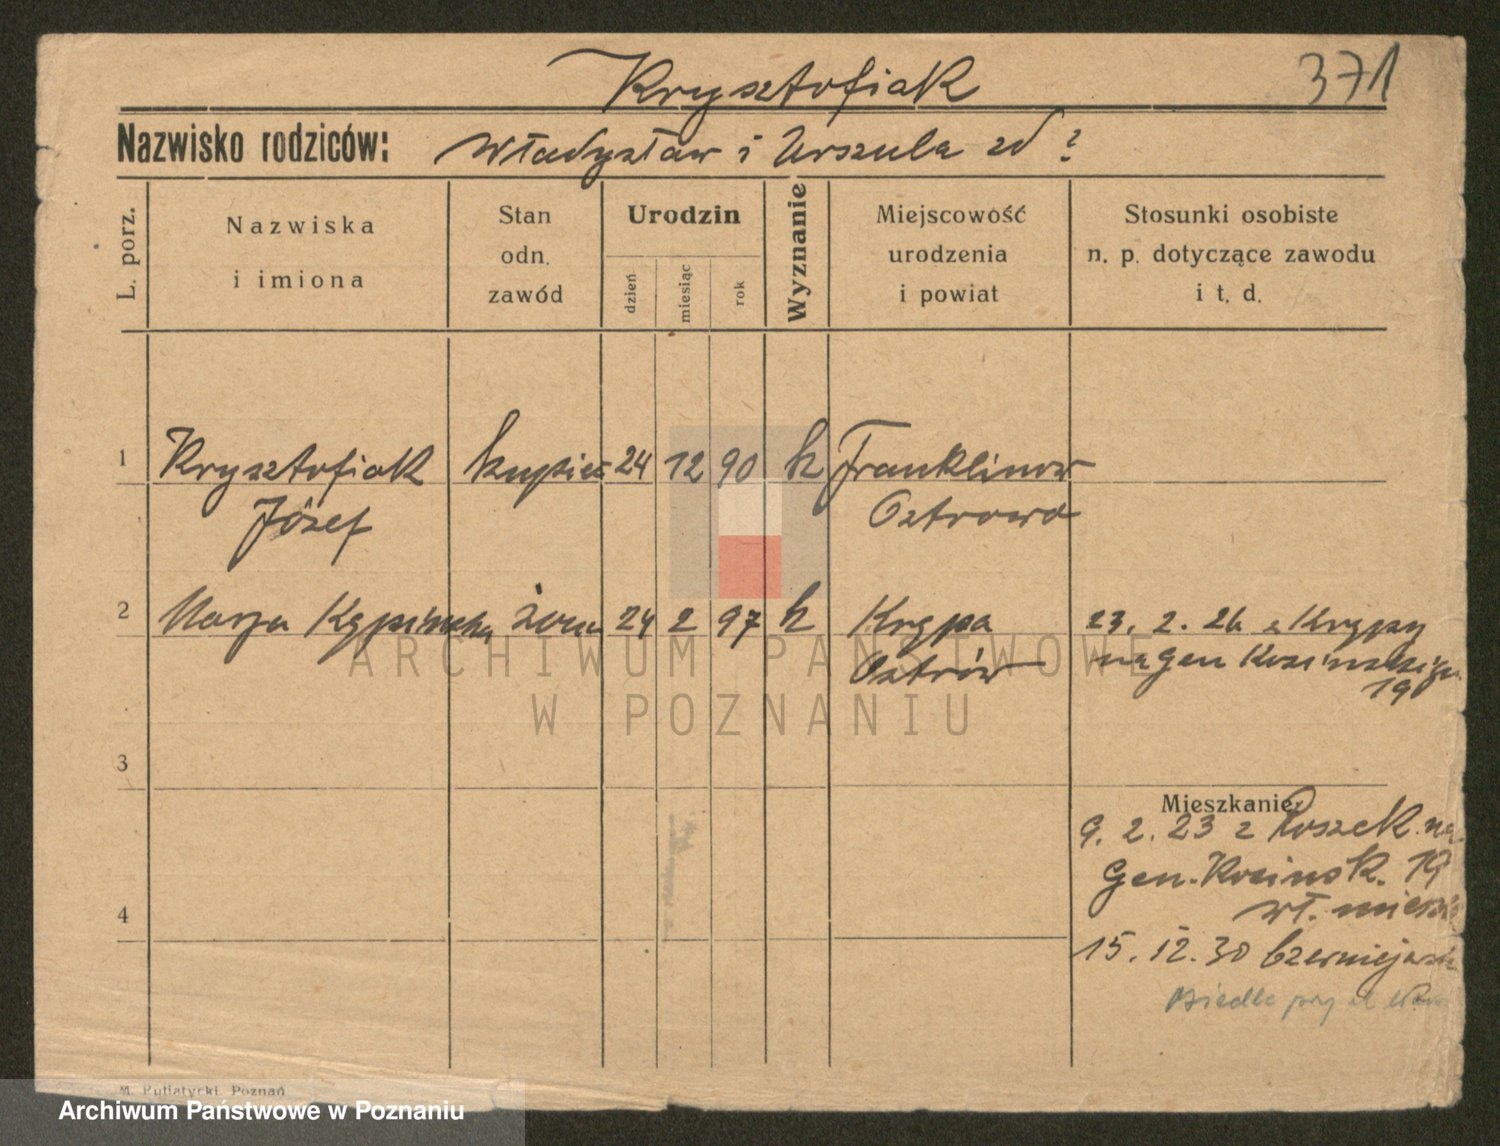 Krysztofiak
371
Nazwisko rodziców: Władysław i Urszula zd ?
L. porz.
Nazwiska
i imiona
Stan
odn.
zawód
Urodzin
dzień
miesiąc
rok
Wyznanie
Miejscowość
urodzenia
i powiat
Stosunki osobiste
n. p. dotyczące zawodu
i t. d.
1 Krysztofiak kupiec 24 12 90 k Franklinow
Józef Ostrowo
2 Marja żona 24 2 97 k Krępa 23. 2. 26 z Krępy
Ostrów na Gen
19
3
Mieszkanie:
9. 2. 23 z Koszek. na
Gen. Kosinsk. 19
4 wł.
15. 12. 30
ARCHIWUM PAŃSTWOWE
W POZNANIU
M. Putiatycki, Poznań
Archiwum Państwowe w Poznaniu